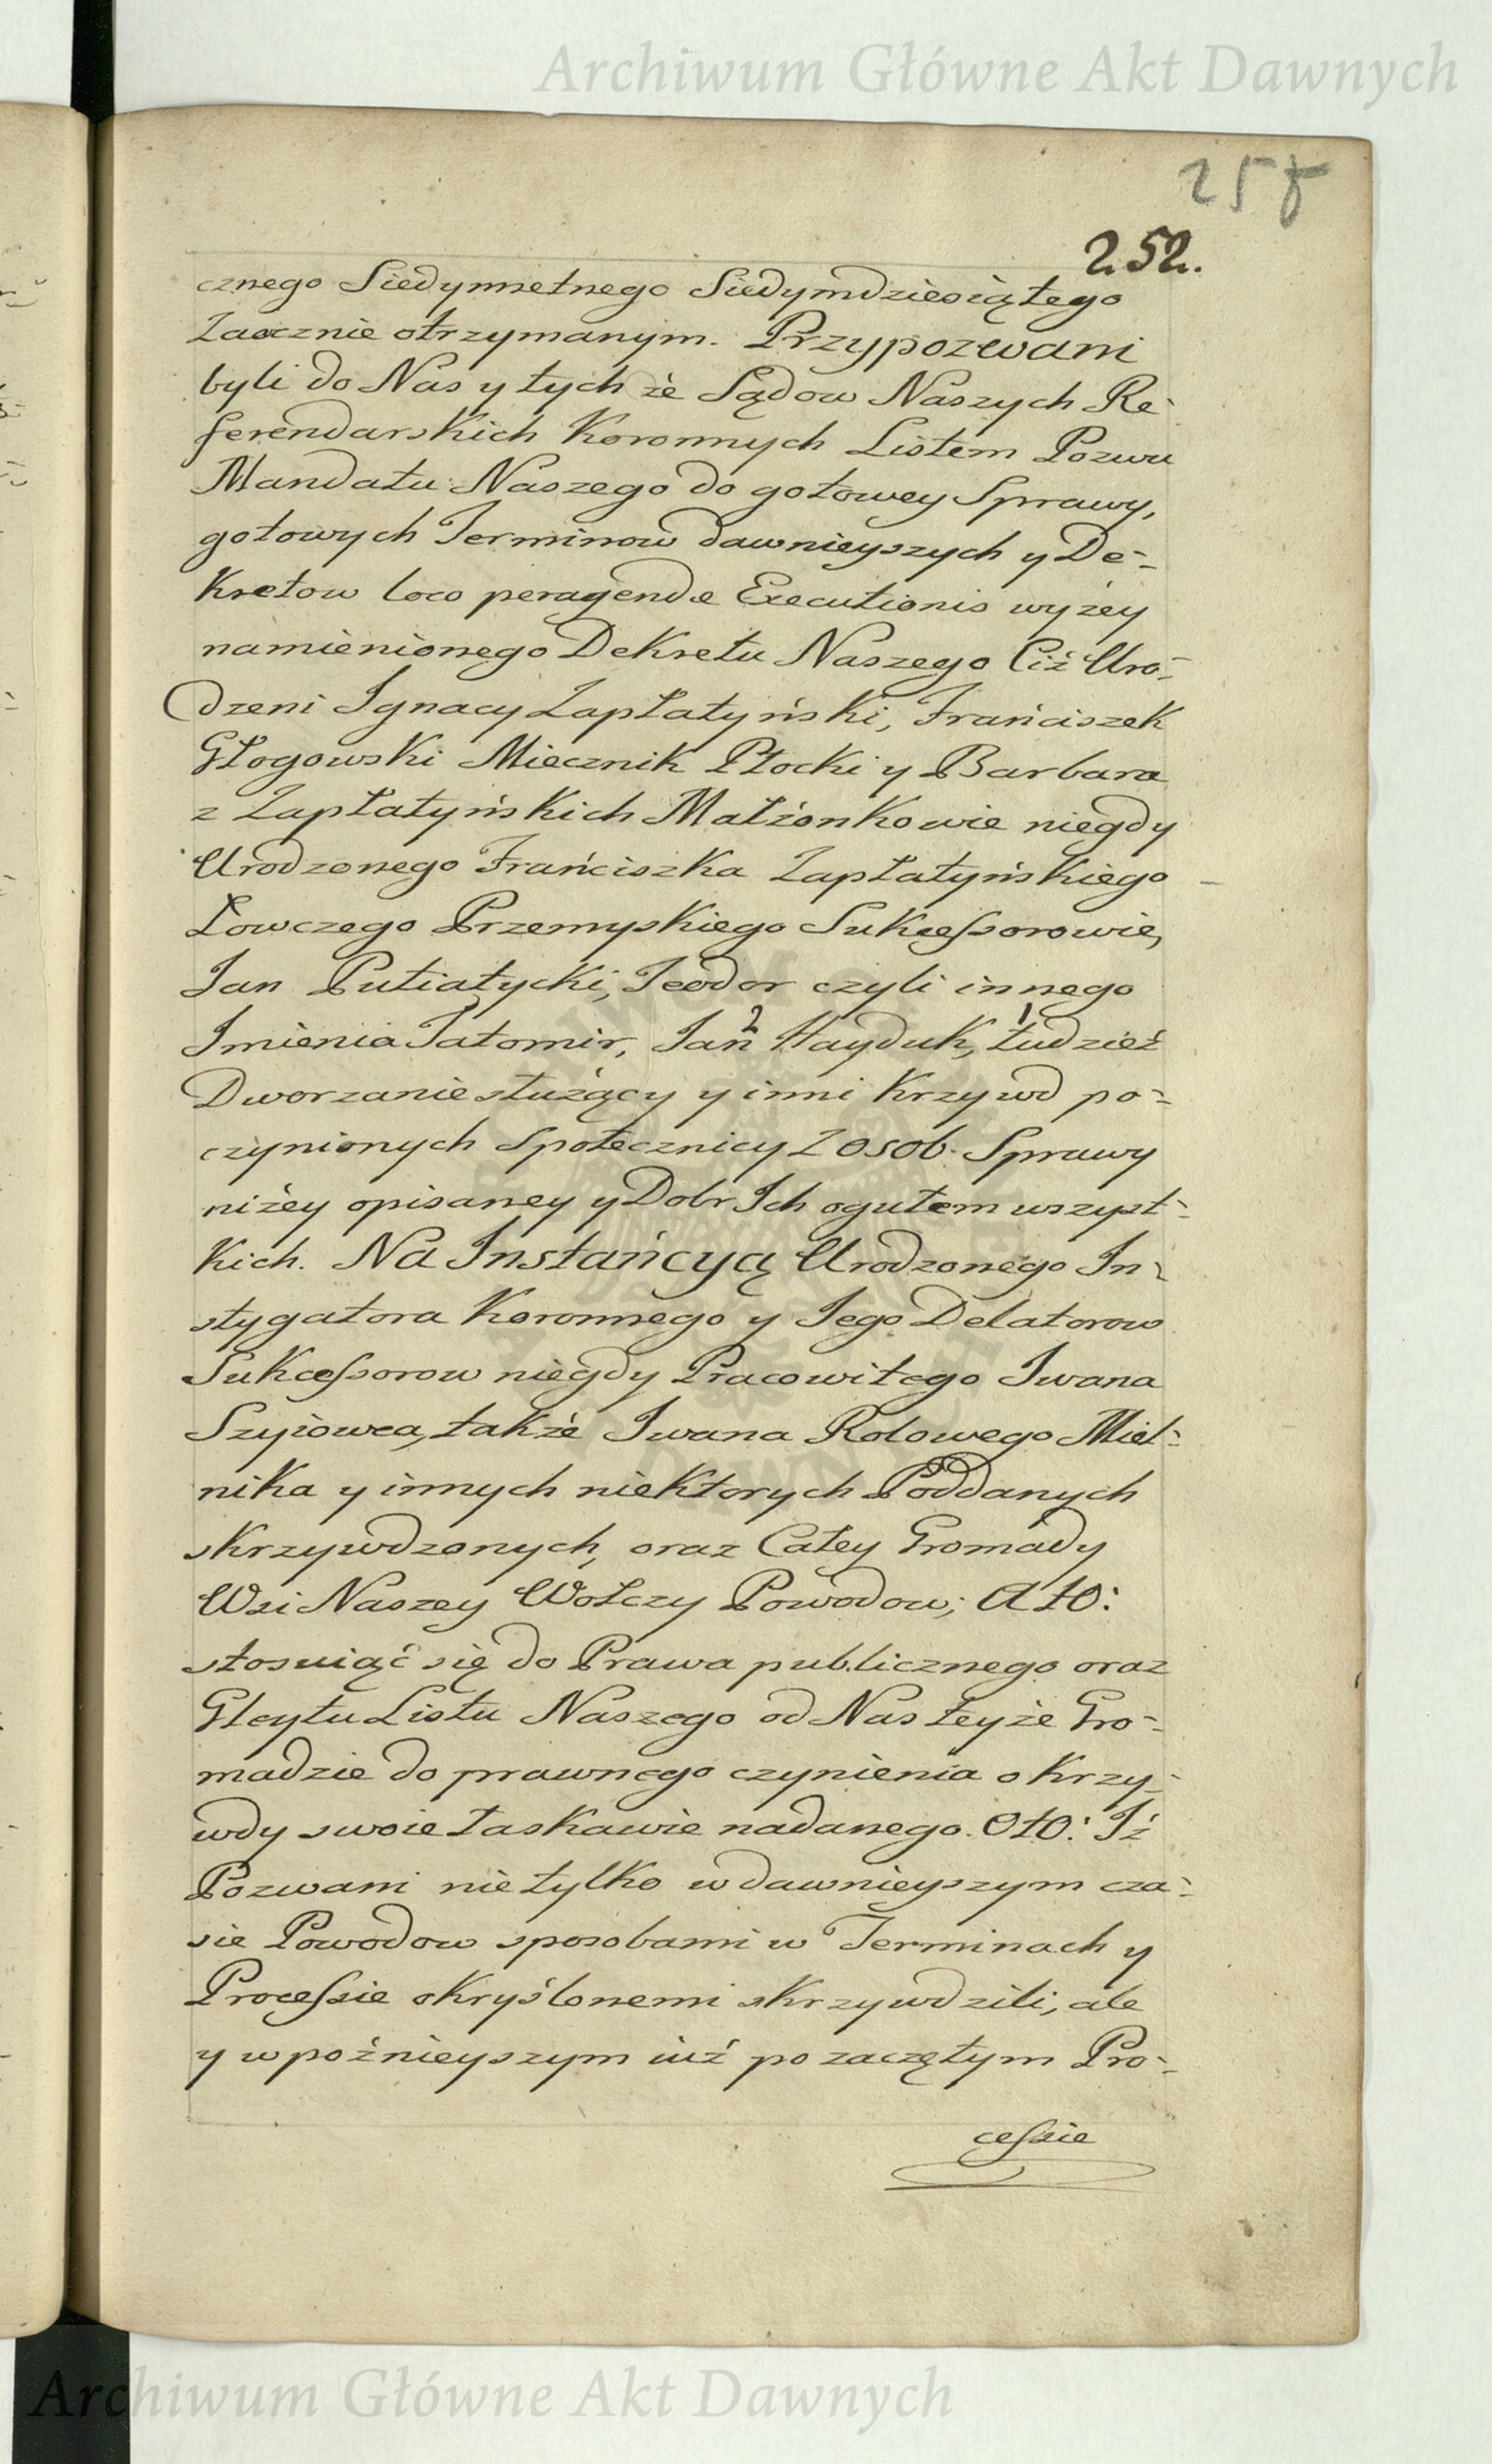 Archiwum Główne Akt Dawnych
257
252.
cznego Siedymsetnego Siedymdziesiątego
Zaocznie otrzymanym. Przypozwani
byli do Nas y tych że Sądow Naszych Re-
ferendarskich Koronnych Listem Pozwu
Mandatu Naszego do gotowey Sprawy,
gotowych Terminow dawnieyszych y De-
Kretow loco peragendæ Executionis wyżey
namienionego DeKretu Naszego Ciż Uro-
dzeni Ignacy Zapłatyński, Frańciszek
Głogowski Miecznik Płocki y Barbara
z Zapłatyńskich Małżonkowie niegdy
Urodzonego Frańciszka Zapłatyńskiego
Łowczego Przemyskiego Sukcessorowie,
Jan Putiatycki, Teodor czyli innego
Imienia Jatomir, Jan 2 Hayduk, 1 tudzież
Dworzanie służący y inni Krzywd po-
czynionych Społecznicy Z osob Sprawy
niżey opisaney y Dobr Ich ogułem wszyst-
kich. Na Instańcyą Urodzonego In-
stygatora Koronnego y Jego Delatorow
Sukcessorow niegdy Pracowitego Iwana
Szyiowca, także Iwana Rolowego Miel-
nika y innych niektorych Poddanych
skrzywdzonych, oraz Całey Gromady
Wsi Naszey Wołczy Powodow; A to:
stosuiąc się do Prawa publicznego oraz
Gleytu Listu Naszego od Nas teyże Gro-
madzie do prawnego czynienia o Krzy-
wdy swoie łaskawie nadanego. Oto: Iż
Pozwani nie tylko w dawnieyszym cza-
sie Powodow sposobami w Terminach y
Processie okryślonemi skrzywdzili, ale
y w poźnieyszym iuż po zaczętym Pro-
cessie
Archiwum Główne Akt Dawnych